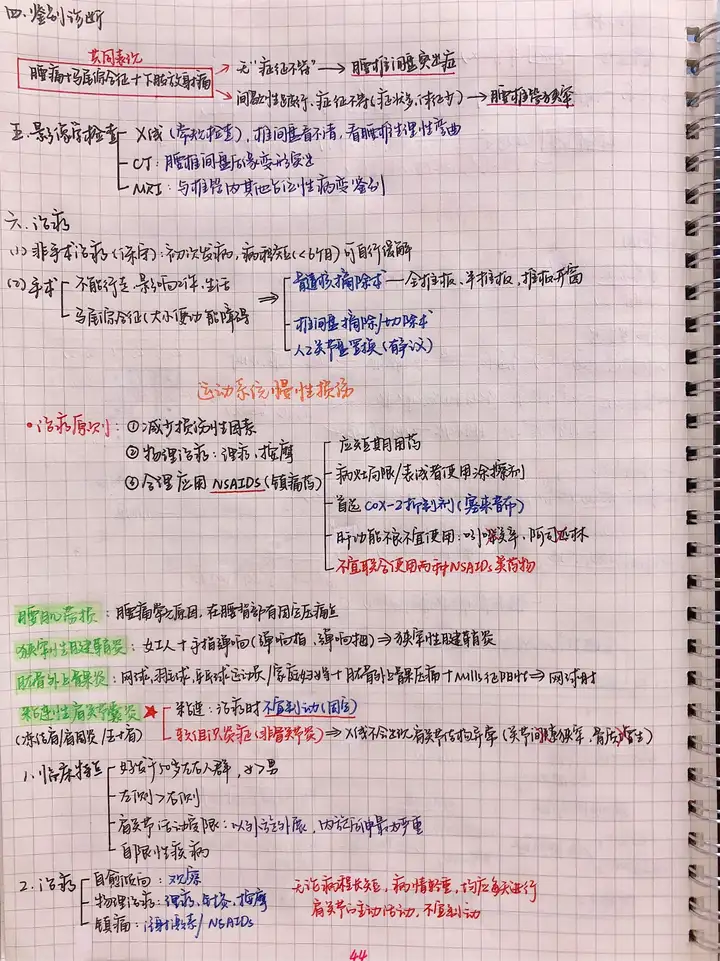 四.鉴别诊断
共同表现
腰痛+马尾综合征+下肢放射痛
无"症征不符" → 腰椎间盘突出症
间歇性跛行、症征不符(症状多,体征少) → 腰椎管狭窄
五.影像学检查
X线(常规检查),椎间盘看不清,看腰椎生理性弯曲
CT:腰椎间盘后缘变形突出
MRI:与椎管内其他占位性病变鉴别
六.治疗
(1)非手术治疗(保守):初次发病,病程短(<6个月)可自行缓解
(2)手术
不能行走、影响工作、生活
马尾综合征(大小便功能障碍)
⇒
髓核摘除术——全椎板、半椎板,椎板开窗
椎间盘摘除/切除术
人工关节盘置换(有争议)
运动系统慢性损伤
•治疗原则:①减少损伤性因素
②物理治疗:理疗,按摩
③合理应用NSAIDS(镇痛药)
应短期用药
病灶局限/表浅者使用涂擦剂
首选COX-2抑制剂(塞来昔布)
肝功能不良不宜使用:吲哚美辛、阿司匹林
不宜联合使用两种NSAIDs类药物
腰肌劳损:腰痛常见原因,在腰背部有固定压痛点
狭窄性腱鞘炎:女工人+手指弹响(弹响指,弹响拇)⇒狭窄性腱鞘炎
肱骨外上髁炎:网球,羽毛球,乒乓球运动员/家庭妇女+肱骨外上髁压痛+Mills征阳性⇒网球肘
粘连性肩关节囊炎★
(冻结肩/肩周炎/五十肩)
粘连:治疗时不宜制动(固定)
软组织炎症(非骨关节炎)⇒X线不会出现肩关节结构异常(关节间隙狭窄,骨质增生)
1.临床特点
好发于50岁左右人群,女>男
左侧>右侧
肩关节活动受限:以外旋外展,内旋后伸最为严重
自限性疾病
2.治疗
自愈倾向:观察
物理治疗:理疗,针灸,按摩
镇痛:注射激素/NSAIDs
无论病程长短,病情轻重,均应每天进行
肩关节的主动活动,不宜制动
44